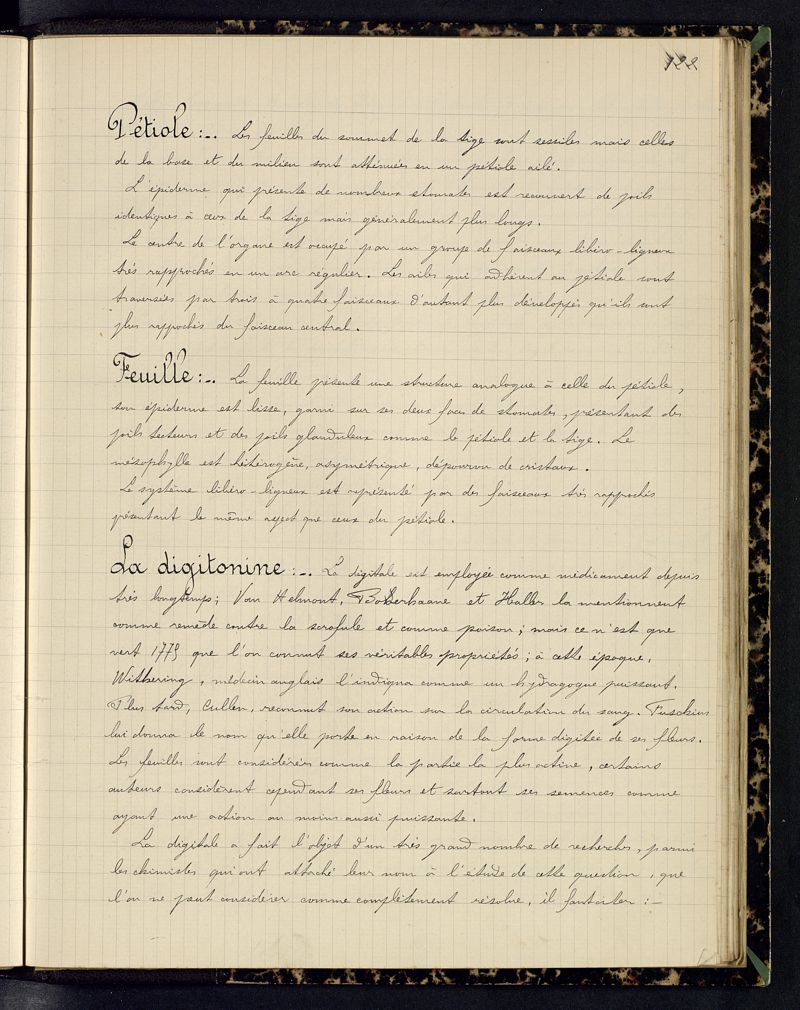 122
Pétiole :-. Les feuilles du sommet de la tige sont sessiles mais celles
de la base et du milieu sont atténuées en un pétiole ailé.
L'épiderme qui présente de nombreux stomates est recouvert de poils
identiques à ceux de la tige mais généralement plus longs.
Le centre de l'organe est occupé par un groupe de faisceaux libéro-ligneux
très rapprochés en un arc régulier. Les ailes qui adhèrent au pétiole sont
traversées par trois à quatre faisceaux d'autant plus développés qu'ils sont
plus rapprochés du faisceau central.
Feuille :-. La feuille présente une structure analogue à celle du pétiole,
son épiderme est lisse, garni sur ses deux faces de stomates, présentant des
poils tecteurs et des poils glanduleux comme le pétiole et la tige. Le
mésophylle est hétérogène, asymétrique, dépourvu de cristaux.
Le système libéro-ligneux est représenté par des faisceaux très rapprochés
présentant le même aspect que ceux du pétiole.
La digitonine :-. La digitale est employée comme médicament depuis
très longtemps; Van Helmont, Boerhaave et Haller la mentionnent
comme remède contre la scrofule et comme poison; mais ce n'est que
vert 1775 que l'on connut ses véritables propriétés; à cette époque,
Withering, médecin anglais l'indiqua comme un hydragogue puissant.
Plus tard, Cullen, reconnut son action sur la circulation du sang. Fuschius
lui donna le nom qu'elle porte en raison de la forme digitée de ses fleurs.
Les feuilles sont considérées comme la partie la plus active, certains
auteurs considèrent cependant ses fleurs et surtout ses semences comme
ayant une action au moins aussi puissante.
La digitale a fait l'objet d'un très grand nombre de recherches, parmi
les chimistes qui ont attaché leur nom à l'étude de cette question, que
l'on ne peut considérer comme complètement résolue, il faut citer :-